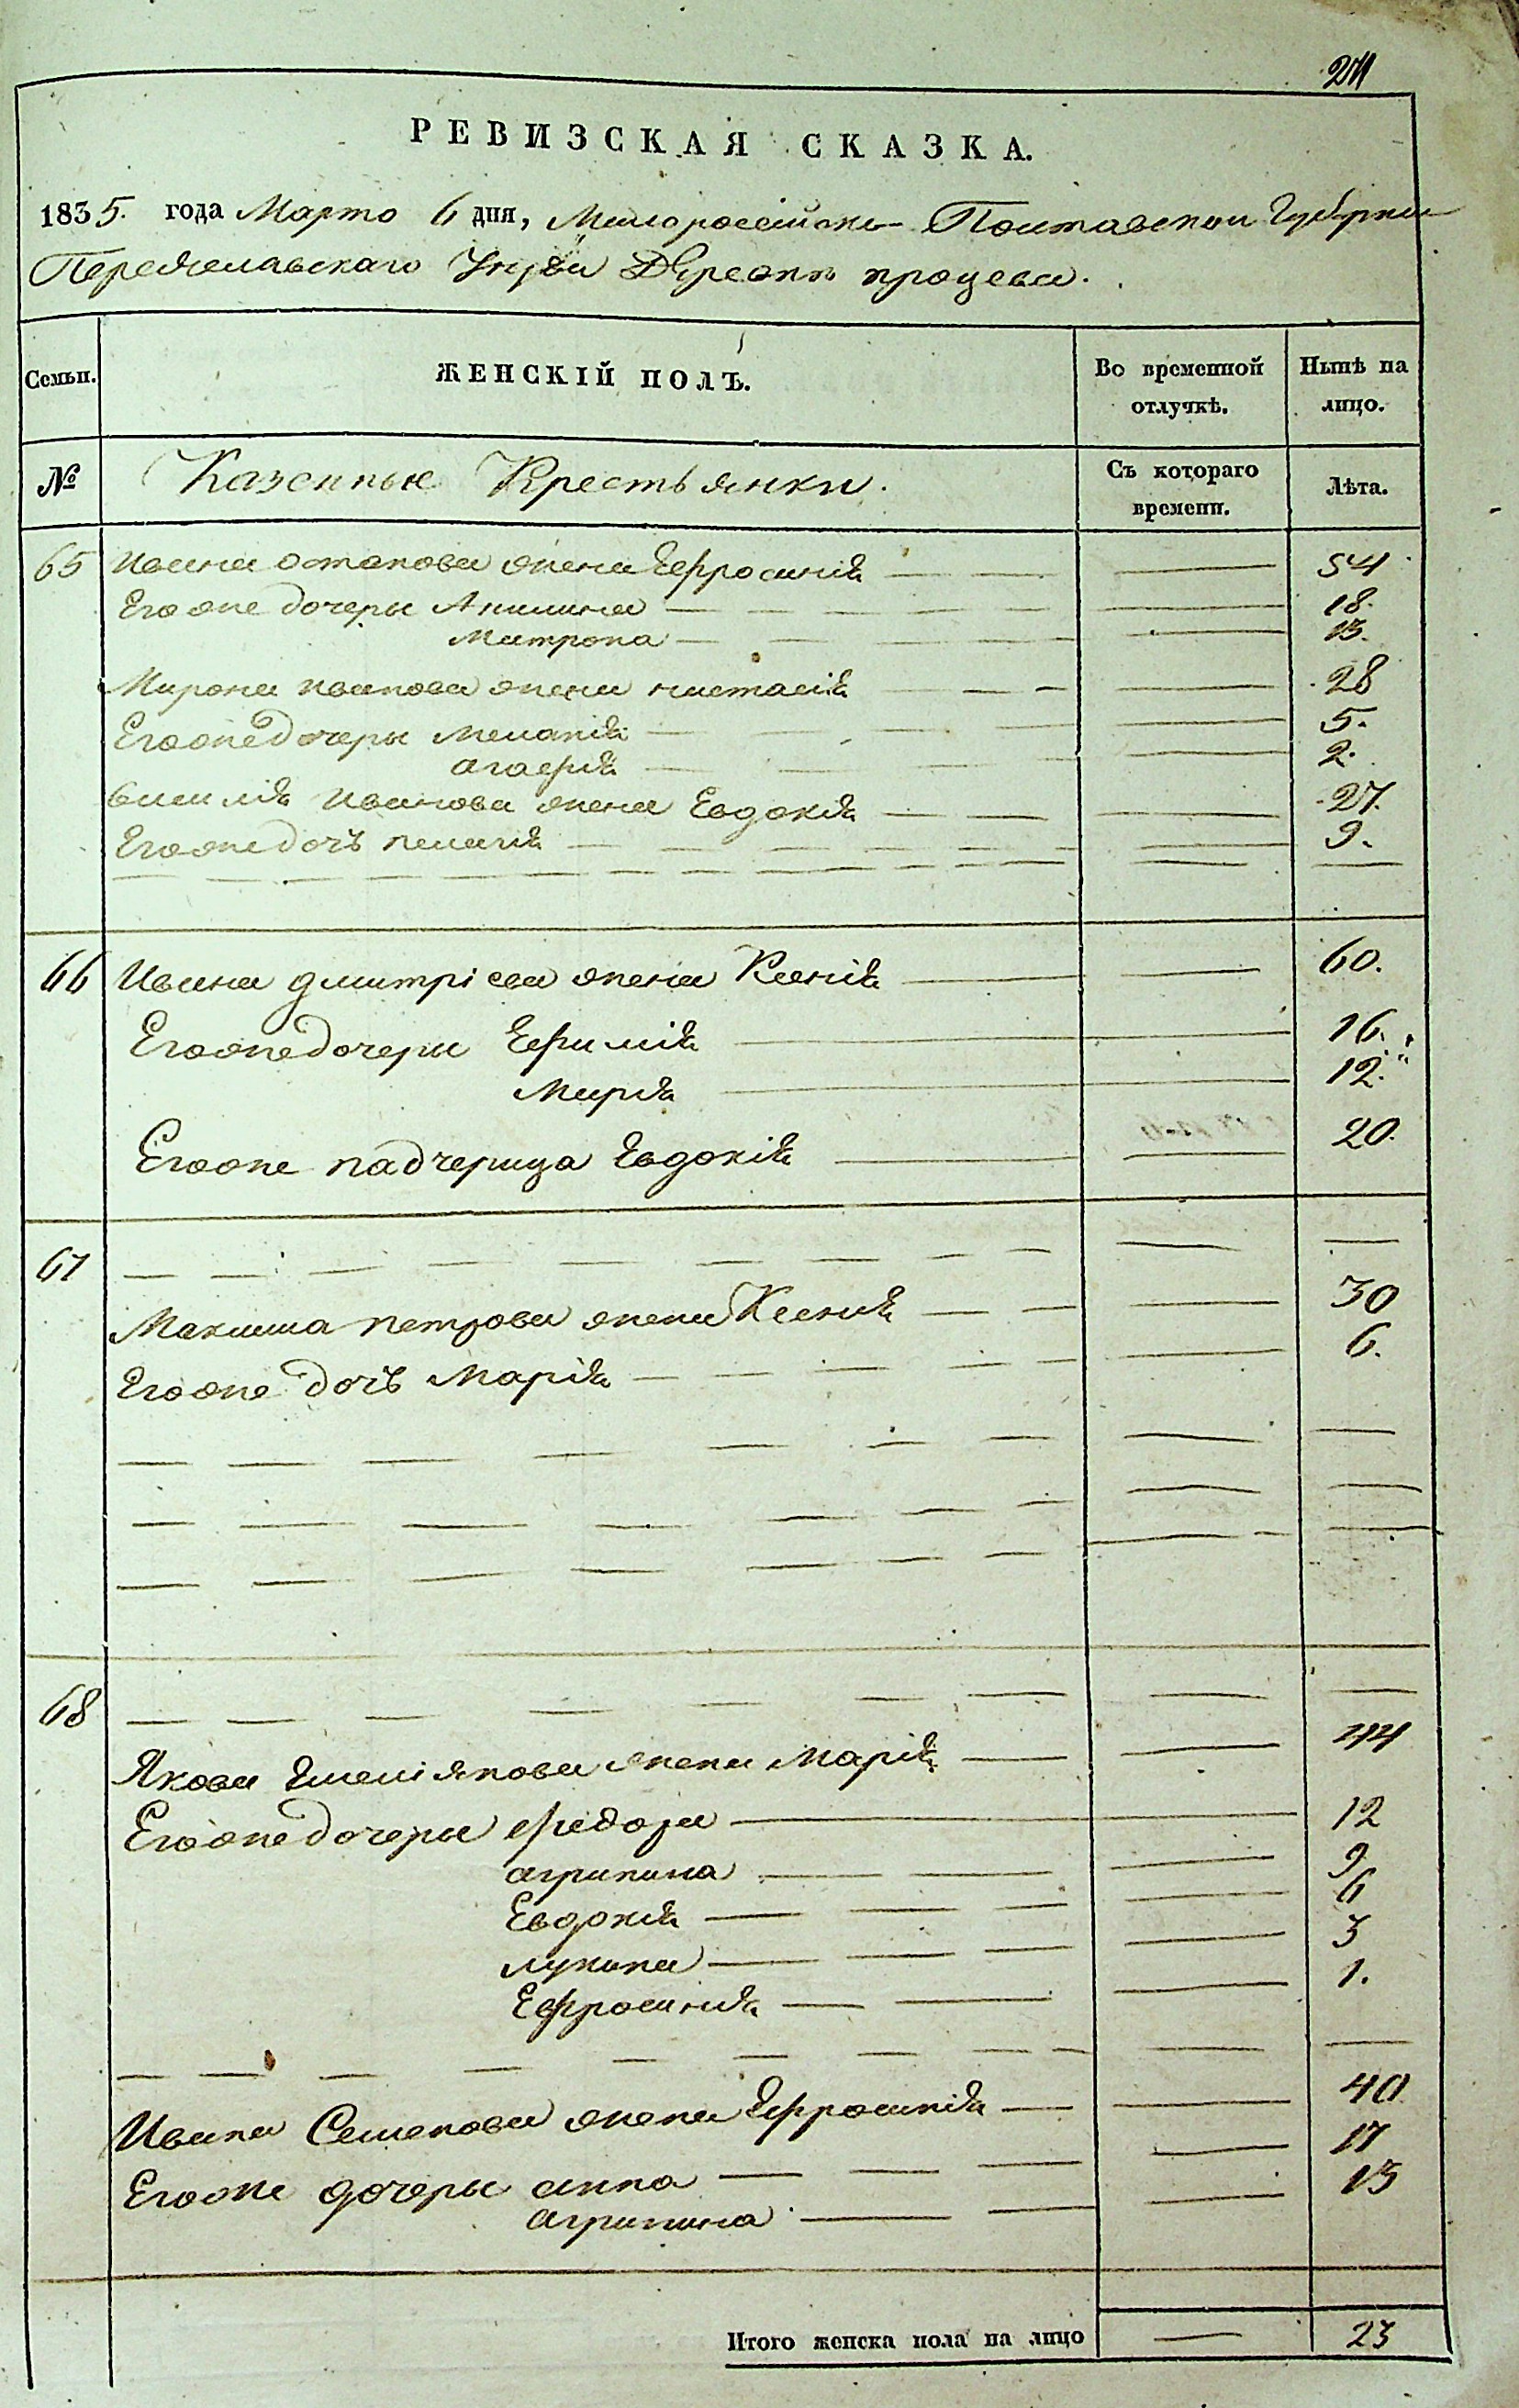 271
РЕВИЗСКАЯ СКАЗКА.
1835. года Марта 6 дня, Малоросейско Полтавской Губернии
Переяславскаго Уезда Деревни процева.
Семьи. ЖЕНСКІЙ ПОЛЪ. Во временной отлучкѣ. Нынѣ на лицо.
№ Казенные Крестьянки. Съ котораго времени. Лѣта.
65 Ивана остапова жена Ефросинія 54
Егоже дочеры Акилина 18.
Матрона 13.
Мирона иванова жена настасія 28
Егоже дочеры меланія 5.
агафія 2.
василія иванова жена Евдокія 27.
Егоже дочь пелагія 9.
66 Ивана дмитріева жена Ксенія 60.
Егоже дочери Ефимія 16.
Марія 12.
Егоже падчерица Евдокія 20.
67
Максима петрова жена Ксенія 30
Егоже дочь Марія 6.
68
Якова Емеліянова жена Марія 44
Егоже дочеры федора 12
агрипина 9
Евдокія 6
лукина 3
Ефросинія 1.
Ивана Семенова жена Ефросинія 40
Егоже дочеры анна 17
агрипина 13
Итого женска пола на лицо 23